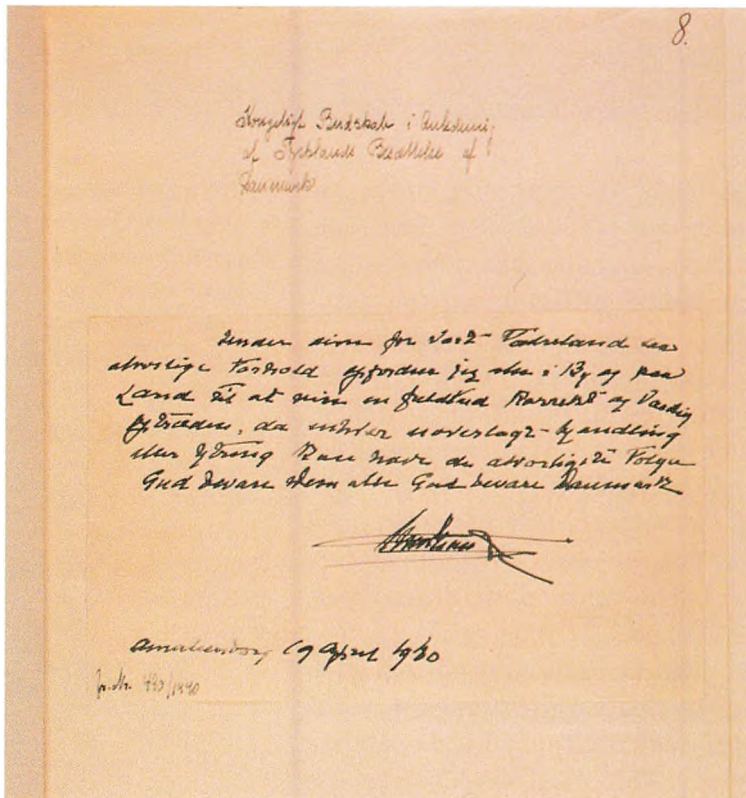 8.
Kongeligt Budskab i Anledning
af Tysklands Besættelse af
Danmark
Under disse for vort Fædreland saa
alvorlige Forhold opfordrer jeg alle i By og paa
Land til at vise en fuldtud korrekt og værdig
Optræden, da enhver uoverlagt Handling
eller Ytring kan have de alvorligste Følger
Gud bevare Dem alle Gud bevare Danmark
Amalienborg 9 April 1940
Jr. Nr. 493/1940